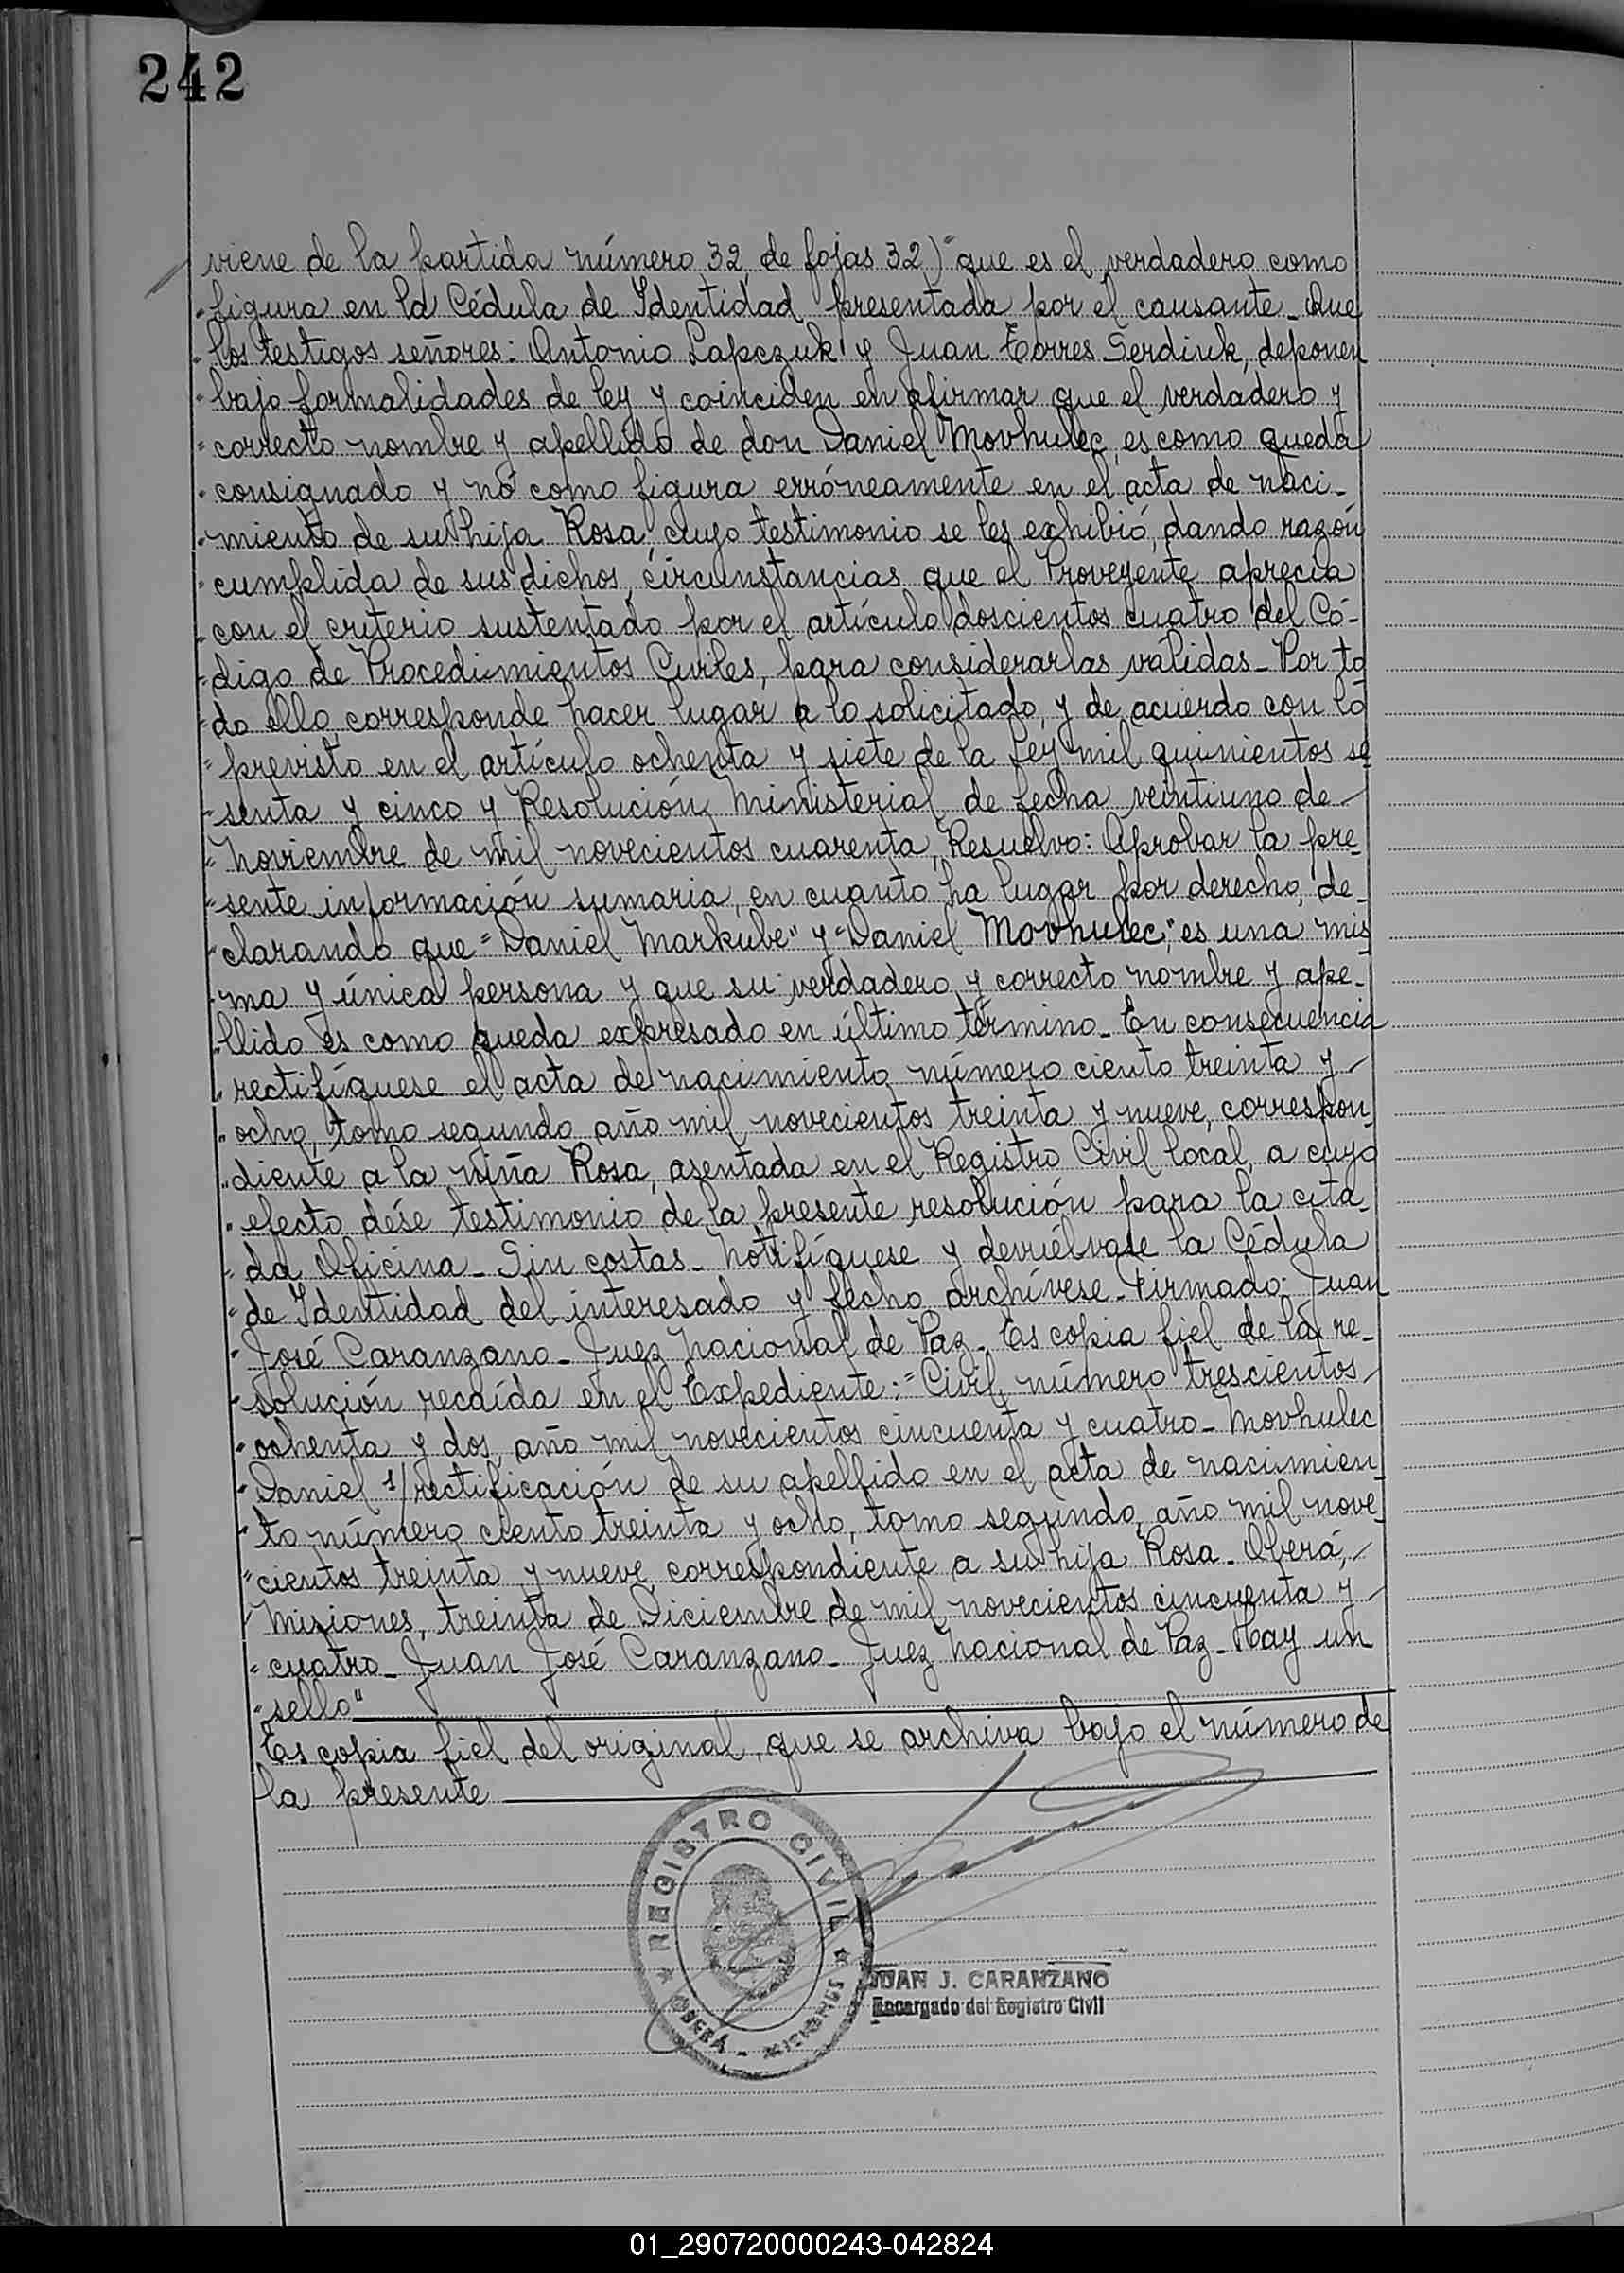 242
viene de la partida número 32 de fojas 32) "que es el verdadero como
"figura en la Cédula de Identidad presentada por el causante_ Que
"los testigos señores: Antonio Lapczuk y Juan Torres Serdiuk, deponen
"bajo formalidades de ley y coinciden en afirmar que el verdadero y
"correcto nombre y apellido de don Daniel Movhulec, es como queda
"consignado y nó como figura erróneamente en el acta de naci-
"miento de su hija Rosa, cuyo testimonio se les exhibió, dando razón
"cumplida de sus dichos, circunstancias que el Proveyente aprecia
"con el criterio sustentado por el artículo doscientos cuatro del Có-
"digo de Procedimientos Civiles, para considerarlas válidas_ Por to
"do ello corresponde hacer lugar a lo solicitado, y de acuerdo con lo
"previsto en el artículo ochenta y siete de la Ley mil quinientos se
"senta y cinco y Resolución Ministerial de fecha veintiuno de
"Noviembre de mil novecientos cuarenta, Resuelvo: Aprobar la pre-
"sente información sumaria, en cuanto ha lugar por derecho, de-
"clarando que "Daniel Markube" y "Daniel Movhulec," es una mis
"ma y única persona y que su verdadero y correcto nombre y ape-
"llido es como queda expresado en último término_ En consecuencia
"rectifíquese el acta de nacimiento número ciento treinta y
"ocho, tomo segundo año mil novecientos treinta y nueve, correspon
"diente a la niña Rosa, asentada en el Registro Civil local, a cuyo
"efecto dése testimonio de la presente resolución para la cita-
"da Oficina_ Sin costas_ Notifíquese y devuélvase la Cédula
"de Identidad del interesado y fecho archívese_ Firmado: Juan
"José Caranzano_ Juez Nacional de Paz_ Es copia fiel de la re-
"solución recaída en el Expediente: "Civil número trescientos
"ochenta y dos, año mil novecientos cincuenta y cuatro_ Movhulec
"Daniel s/rectificación de su apellido en el acta de nacimien
"to número ciento treinta y ocho, tomo segundo, año mil nove-
"cientos treinta y nueve correspondiente a su hija Rosa_ Oberá,
"Misiones, treinta de Diciembre de mil novecientos cincuenta y
"cuatro_ Juan José Caranzano_ Juez Nacional de Paz_ Hay un
"sello"
Es copia fiel del original, que se archiva bajo el número de
la presente
REGISTRO CIVIL
OBERÁ - MISIONES
JUAN J. CARANZANO
Encargado del Registro Civil
01_290720000243-042824